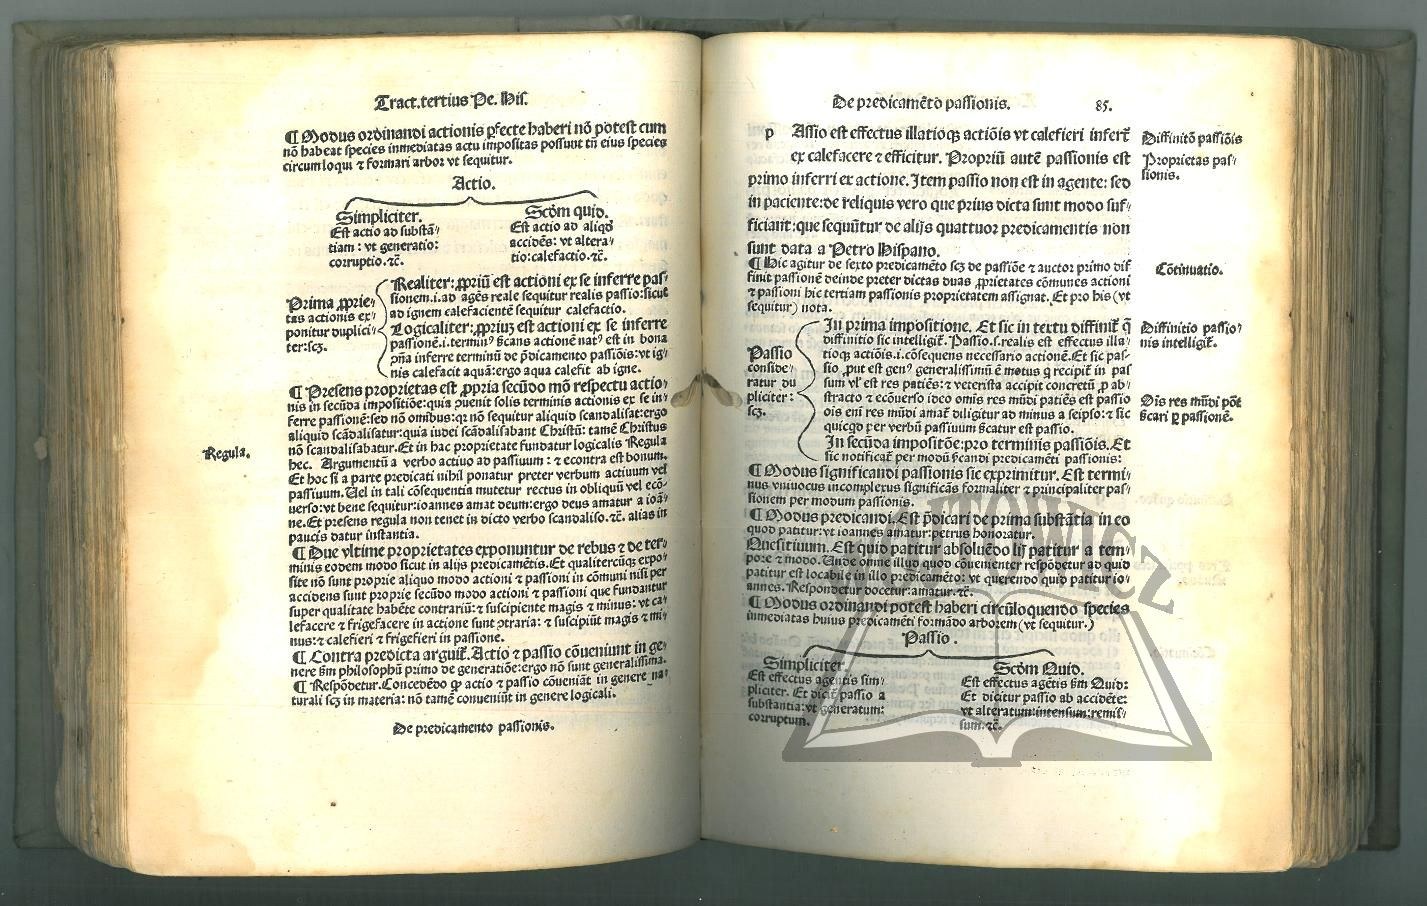 Tract. tertius Pe. His.
¶ Modus ordinandi actionis ꝑfecte haberi nõ potest cum
nõ habeat species inmediatas actu impositas possunt tñ eius species
circum loqui ⁊ formari arbor vt sequitur.
Actio.
Simpliciter.
Est actio ad substã⸗
tiam : vt generatio:
corruptio. ⁊c̃.
Scd̃m quid.
Est actio ad aliqd
accidẽs: vt altera⸗
tio: calefactio. ⁊c̃.
Prima ꝓprie⸗
tas actionis ex⸗
ponitur duplici⸗
ter: scꝫ.
Realiter: ꝓpriũ est actioni ex se inferre pas⸗
sionem .i. ad agẽs reale sequitur realis passio: sicut
ad ignem calefacientẽ sequitur calefactio.
Logicaliter: ꝓpriuꝫ est actioni ex se inferre
passionẽ .i. terminꝰ scans actionẽ natꝰ est in bona
ꝯña inferre terminũ de p̃dicamento passiõis: vt ig⸗
nis calefacit aquã: ergo aqua calefit ab igne.
¶ Presens proprietas est ꝓpria secũdo mõ respectu actio⸗
nis in secũda impositiõe: quia ꝯuenit solis terminis actionis ex se in⸗
ferre passionẽ: sed nõ omnibus: qr nõ sequitur aliquid scandalisat: ergo
aliquid scãdalisatur: quia iudei scãdalisabant Christũ: tamẽ Christus
nõ scandalisabatur. Et in hac proprietate fundatur logicalis Regula
hec. Argumentũ a verbo actiuo ad passiuum : ⁊ econtra est bonum.
Et hoc si a parte predicati nihil ponatur preter verbum actiuum vel
passiuum. Uel in tali cõsequentia mutetur rectus in obliquũ vel ecõ⸗
uerso: vt bene sequitur: ioannes amat deum: ergo deus amatur a ioã⸗
ne. Et presens regula non tenet in dicto verbo scandaliso. ⁊c̃. alias in
paucis datur instantia.
Regula.
¶ Due vltime proprietates exponuntur de rebus ⁊ de ter⸗
minis eodem modo sicut in alijs predicamẽtis. Et qualitercũqꝫ expo⸗
site nõ sunt proprie aliquo modo actioni ⁊ passioni in cõmuni nisi per
accidens sunt proprie secũdo modo actioni ⁊ passioni que fundantur
super qualitate habẽte contrariũ: ⁊ suscipiente magis ⁊ minus: vt ca⸗
lefacere ⁊ frigefacere in actione sunt ꝯtraria: ⁊ suscipiũt magis ⁊ mi⸗
nus: ⁊ calefieri ⁊ frigefieri in passione.
¶ Contra predicta arguit̃. Actio ⁊ passio cõueniunt in ge⸗
nere s̃m philosophũ primo de generatiõe: ergo nõ sunt generalissima.
¶ Respõdetur. Concedẽdo ꝙ actio ⁊ passio cõueniãt in genere na⸗
turali scꝫ in materia: nõ tamẽ conueniũt in genere logicali.
De predicamento passionis.
De predicamẽto passionis.
85.
p Assio est effectus illatioqꝫ actiõis vt calefieri infert̃
ex calefacere ⁊ efficitur. Propriũ autẽ passionis est
primo inferri ex actione. Item passio non est in agente: sed
in paciente: de reliquis vero que prius dicta sunt modo suf⸗
ficiant: que sequũtur de alijs quattuor predicamentis non
sunt data a Petro Hispano.
Diffinitõ passiõis
Proprietas pas⸗
sionis.
¶ Hic agitur de sexto predicamẽto scꝫ de passiõe ⁊ auctor primo dif
finit passionẽ deinde preter dictas duas ꝓprietates cõmunes actioni
⁊ passioni hic tertiam passionis proprietatem assignat. Et pro his (vt
sequitur) nota.
Cõtinuatio.
Passio
conside⸗
ratur du
pliciter :
scꝫ.
In prima impositione. Et sic in textu diffinit̃ q̃
diffinitio sic intelligit̃. Passio .s. realis est effectus illa⸗
tioqꝫ actiõis .i. cõsequens necessario actionẽ. Et sic pas⸗
sio ꝓut est genꝰ generalissimũ ẽ motus q̃ recipit̃ in pas
sum vl̓ est res patiẽs: ⁊ vt est ista accipit concretũ ꝓ ab⸗
stracto ⁊ ecõuerso ideo omis res mũdi patiẽs est passio
ois eni res mũdi amat̃ diligitur ad minus a seipso: ⁊ sic
quicqd per verbũ passiuum scatur est passio.
In secũda impositõe: pro terminis passiõis. Et
sic notificat̃ per modũ scandi predicamẽti passionis:
Diffinitio passio⸗
nis intelligit̃.
Ois res mũdi põt
scari ꝑ passionẽ.
¶ Modus significandi passionis sic exprimitur. Est termi⸗
nus vniuocus incomplexus significãs formaliter ⁊ principaliter pas⸗
sionem per modum passionis.
¶ Modus predicandi. Est p̃dicari de prima substãtia in eo
quod patitur: vt ioannes amatur: petrus honoratur.
Quesitiuum. Est quid patitur absoluẽdo lỹ patitur a tem⸗
pore ⁊ modo. Unde omne illud quod cõuenienter respõdetur ad quid
patitur est locabile in illo predicamẽto: vt querendo quid patitur io⸗
annes. Respondetur docetur: amatur. ⁊c̃.
¶ Modus ordinandi potest haberi circũloquendo species
inmediatas huius predicamẽti formãdo arborem (vt sequitur.)
Passio.
Simpliciter.
Est effectus agentis sim⸗
pliciter. Et dicit̃ passio a
substantia: vt generatum:
corruptum.
Scd̃m Quid.
Est effectus agẽtis s̃m Quid:
Et dicitur passio ab accidẽte:
vt alteratum: intensum: remis⸗
sum. ⁊c̃.
WÓJTOWICZ